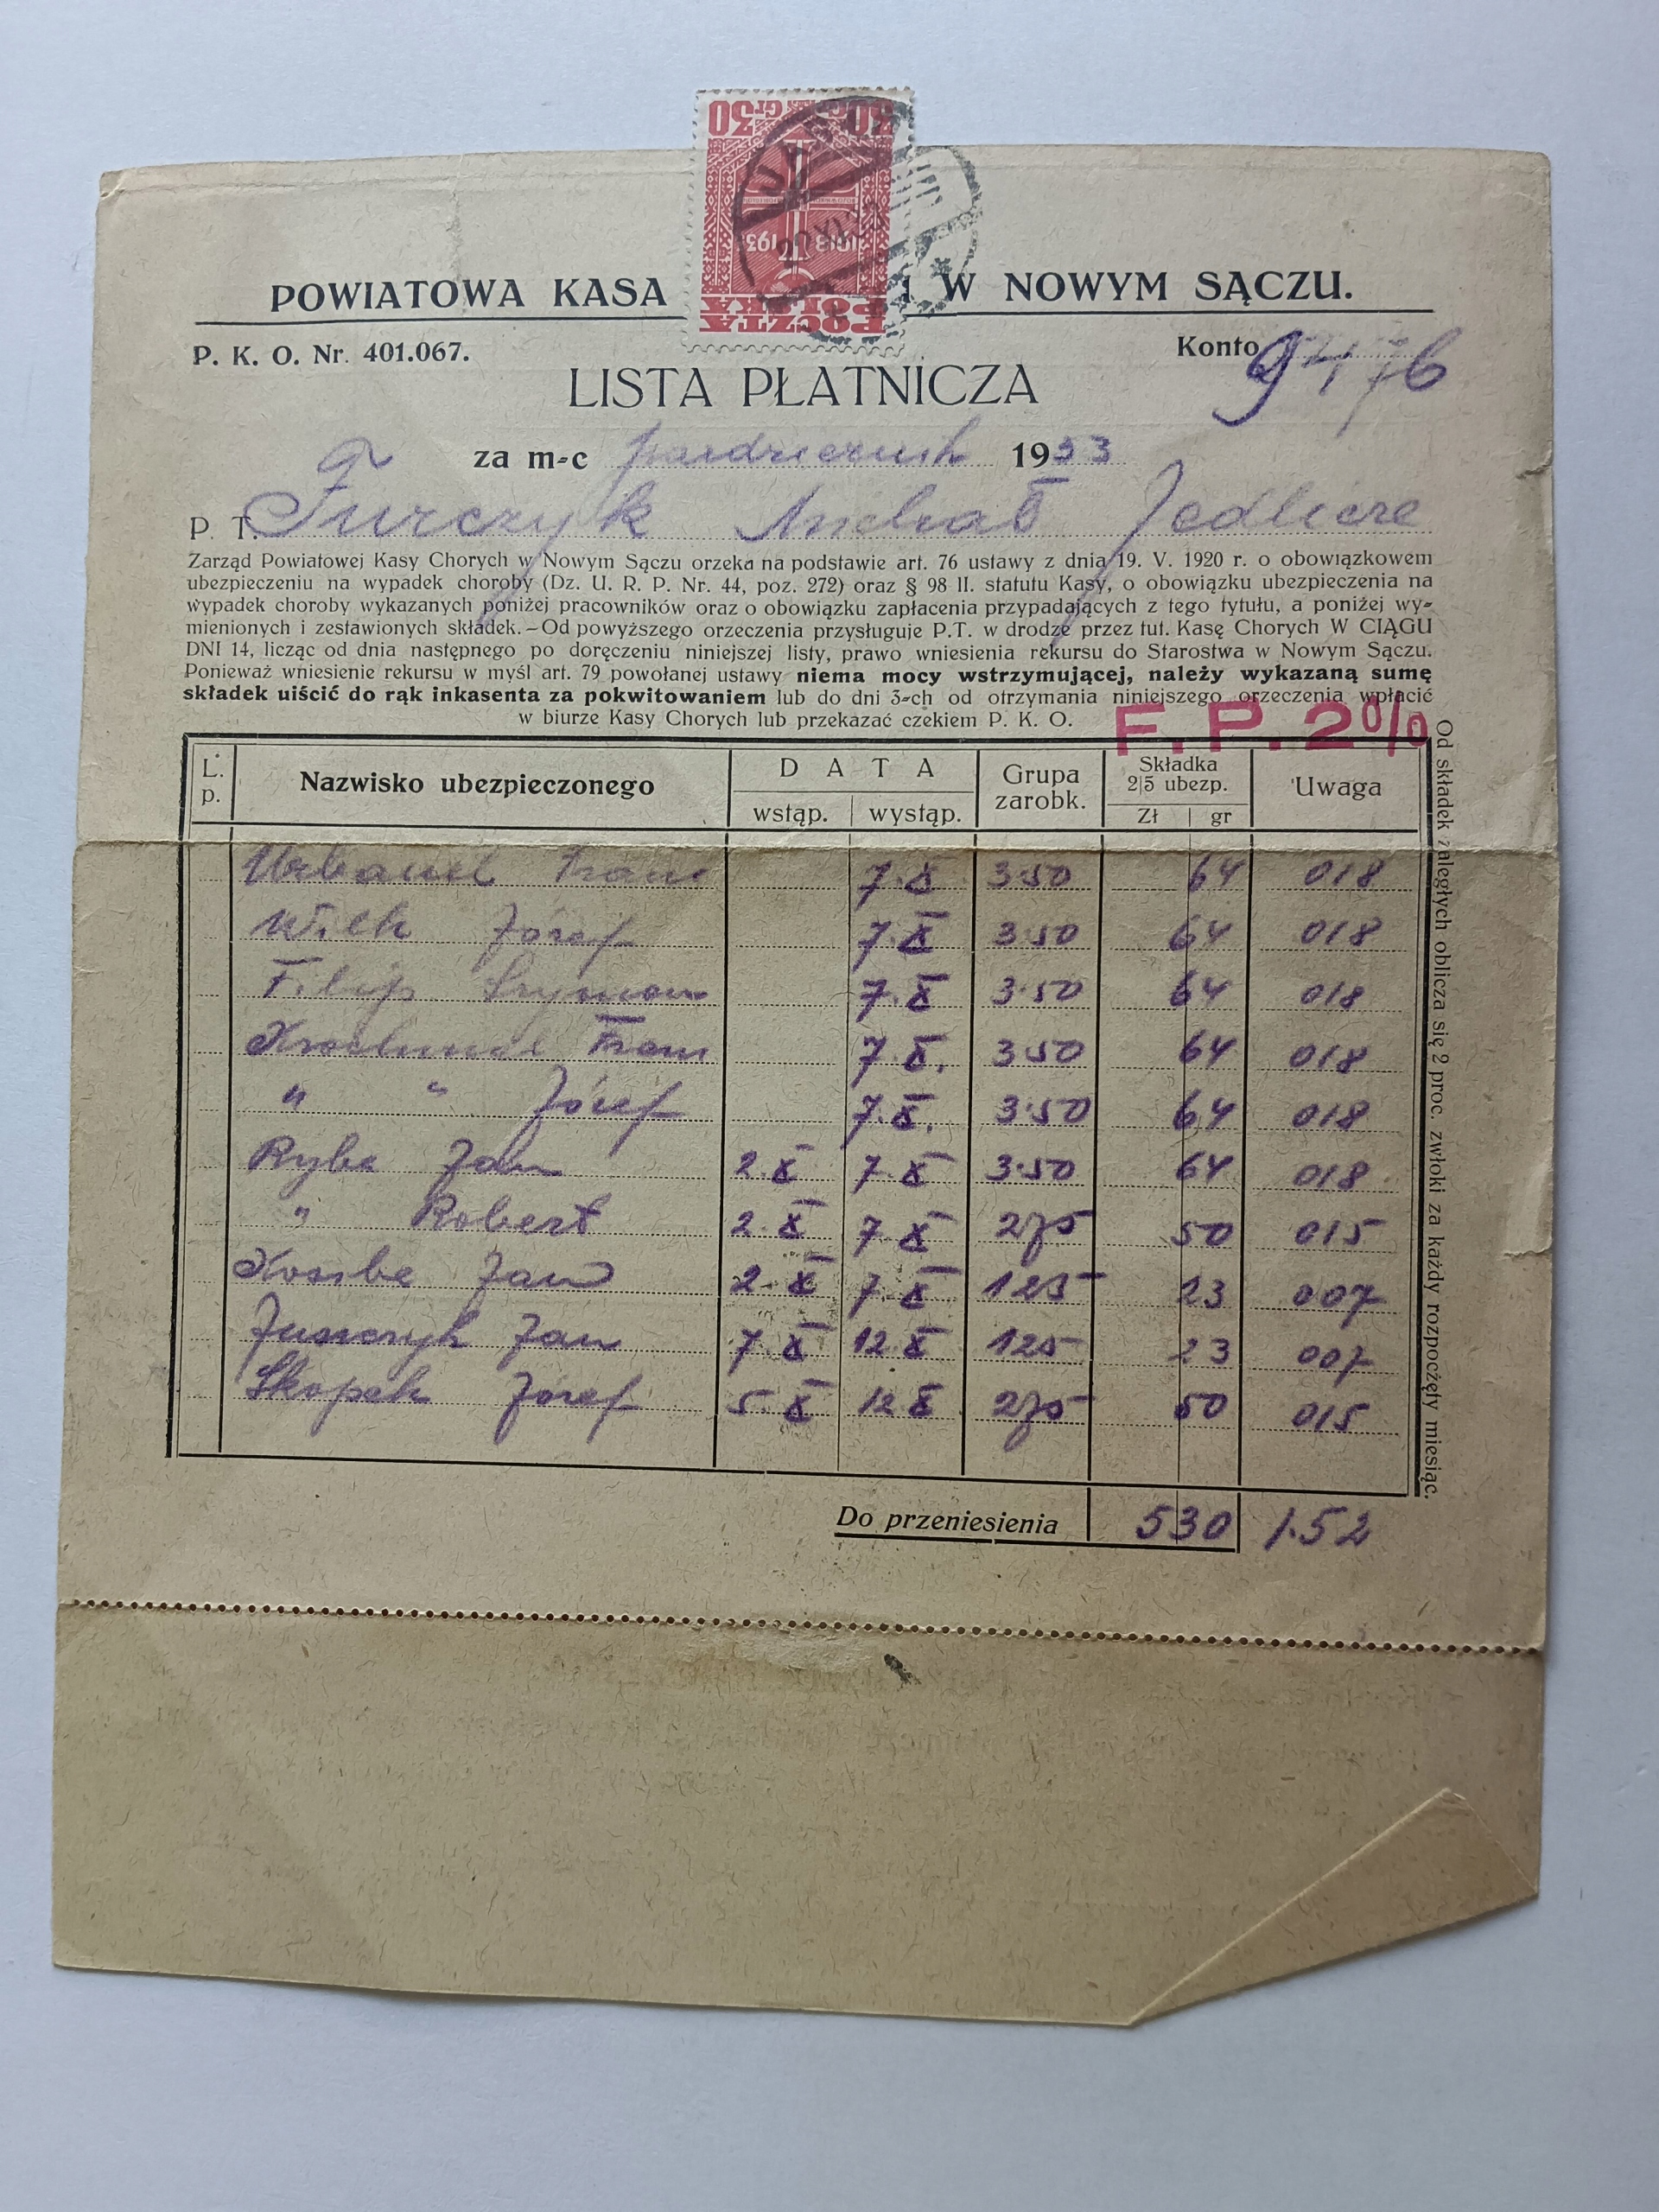 Gr 30 Gr 30
1918 193
POCZTA
POLSKA
POWIATOWA KASA W NOWYM SĄCZU.
P. K. O. Nr. 401.067.
Konto 9476
LISTA PŁATNICZA
za m-c październik 1933
P. T. Turczyk Michał Jedlicze
Zarząd Powiatowej Kasy Chorych w Nowym Sączu orzeka na podstawie art. 76 ustawy z dnia 19. V. 1920 r. o obowiązkowem
ubezpieczeniu na wypadek choroby (Dz. U. R. P. Nr. 44, poz. 272) oraz § 98 II. statutu Kasy, o obowiązku ubezpieczenia na
wypadek choroby wykazanych poniżej pracowników oraz o obowiązku zapłacenia przypadających z tego tytułu, a poniżej wy-
mienionych i zestawionych składek.—Od powyższego orzeczenia przysługuje P.T. w drodze przez tut. Kasę Chorych W CIĄGU
DNI 14, licząc od dnia następnego po doręczeniu niniejszej listy, prawo wniesienia rekursu do Starostwa w Nowym Sączu.
Ponieważ wniesienie rekursu w myśl art. 79 powołanej ustawy niema mocy wstrzymującej, należy wykazaną sumę
składek uiścić do rąk inkasenta za pokwitowaniem lub do dni 3-ch od otrzymania niniejszego orzeczenia wpłacić
w biurze Kasy Chorych lub przekazać czekiem P. K. O.
F. P. 2%
L. p. Nazwisko ubezpieczonego DATA wstąp. wystąp. Grupa zarobk. Składka 2|5 ubezp. Zł gr Uwaga
Urbaniel Franc 7.X 3.50 64 018
Wilk Józef 7.X 3.50 64 018
Filip Szymon 7.X 3.50 64 018
Krochmal Franc 7.X. 3.50 64 018
" " Józef 7.X. 3.50 64 018
Ryba Jan 2.X 7.X 3.50 64 018
" Robert 2.X 7.X 275 50 015
Kossbe Jan 2.X 7.X 125 23 007
Juszczyk Jan 7.X 12.X 125 23 007
Skopek Józef 5.X 12 X 275 50 015
Do przeniesienia 530 1.52
Od składek zaległych oblicza się 2 proc. zwłoki za każdy rozpoczęty miesiąc.